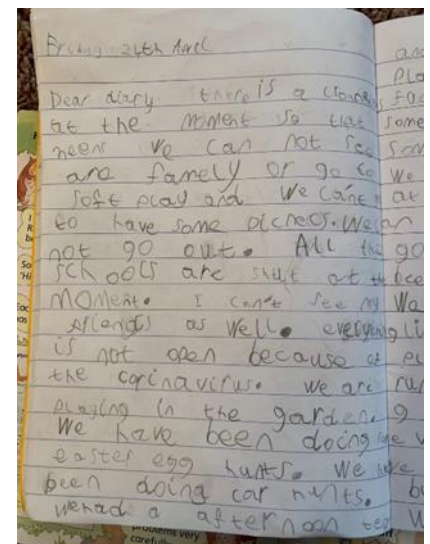 Friday 24th April
Dear diary there is a
at the moment so that
meens we can not see
are famely or go to
soft play and we cant
to have some picnecs. We can
not go out. All the
schools are shut at the
moment. I can't see my
friends as well. everything
is not open because of
the corinavirus. we are
playing in the garden.
We have been doing
easter egg hunts. We have
been doing car hunts.
wehad a afternoon tea
and
Pla
some
We
at
go
bee
We
li